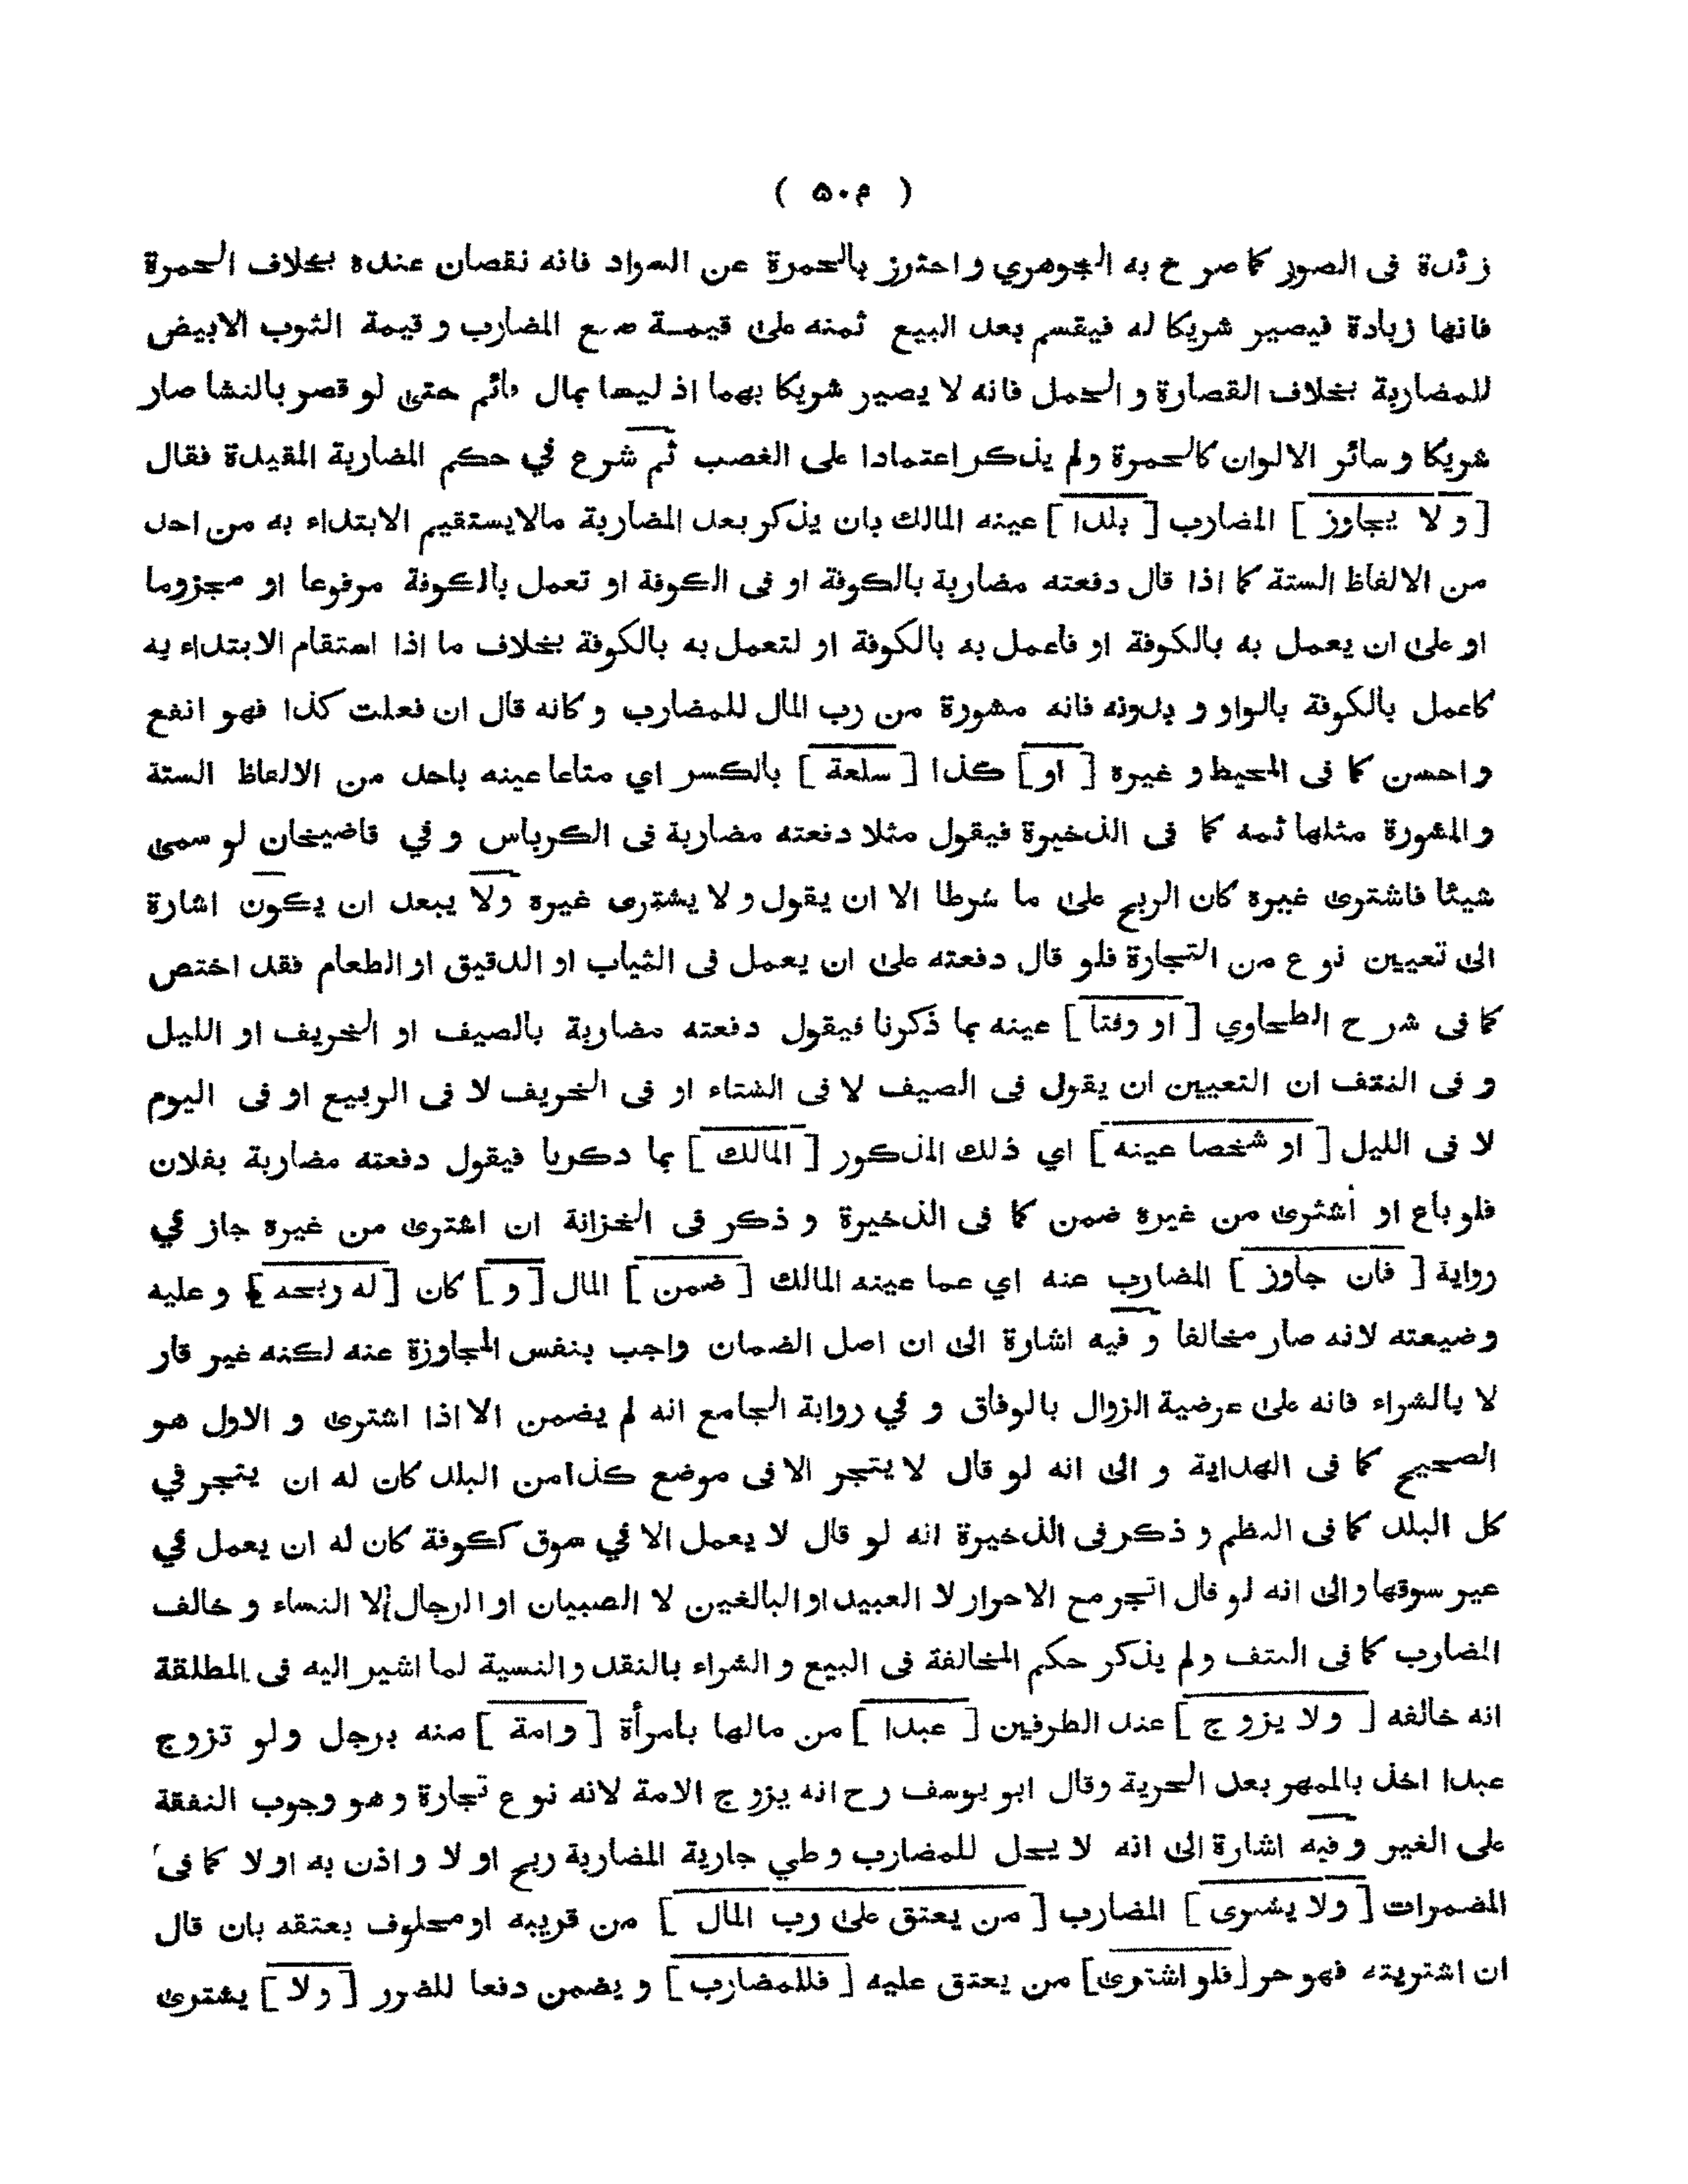 ( ۵۰۴ )
زئدة فى الصور كما صرح به الجوهري و احترز بالحمرة عن السواد فانه نقصان عنده بخلاف الحمرة
فانها زيادة فيصير شريكا له فيقسم بعد البيع ثمنه على قيمة صبع المضارب و قيمة الثوب الابيض
للمضاربة بخلاف القصارة و الحمل فانه لا يصير شريكا بهما اذ ليسا بمال دائم حتى لو قصر بالنشا صار
شريكا و سائر الالوان كالحمرة ولم يذكر اعتمادا على الغصب ثم شرع في حكم المضاربة المقيدة فقال
[ و لا يجاوز ] المضارب [ بلدا ] عينه المالك بان يذكر بعد المضاربة مالايستقيم الابتداء به من احد
من الالفاظ الستة كما اذا قال دفعته مضاربة بالكوفة او فى الكوفة او تعمل بالكوفة مرفوعا او مجزوما
او على ان يعمل به بالكوفة او فاعمل به بالكوفة او لتعمل به بالكوفة بخلاف ما اذا استقام الابتداء به
كاعمل بالكوفة بالواو و بدونه فانه مشورة من رب المال للمضارب و كانه قال ان فعلت كذا فهو انفع
و احسن كما فى المحيط و غيره [ او ] كذا [ سلعة ] بالكسر اي متاعا عينه باحد من الالفاظ الستة
و المشورة مثلها ثمه كما فى الذخيرة فيقول مثلا دفعته مضاربة فى الكرباس و في قاضيخان لو سمى
شيئا فاشترى غيره كان الربح على ما شرطا الا ان يقول و لا يشترى غيره ولا يبعد ان يكون اشارة
الى تعيين نوع من التجارة فلو قال دفعته على ان يعمل فى الثياب او الدقيق او الطعام فقد اختص
كما فى شرح الطحاوي [ او وقتا ] عينه بما ذكرنا فيقول دفعته مضاربة بالصيف او الخريف او الليل
و فى النتف ان التعيين ان يقول فى الصيف لا فى الشتاء او فى الخريف لا فى الربيع او فى اليوم
لا فى الليل [ او شخصا عينه ] اي ذلك المذكور [ المالك ] بما ذكرنا فيقول دفعته مضاربة بفلان
فلو باع او اشترى من غيره ضمن كما فى الذخيرة و ذكر فى الخزانة ان اشترى من غيره جاز في
رواية [ فان جاوز ] المضارب عنه اي عما عينه المالك [ ضمن ] المال [ و ] كان [ له ربحه ] و عليه
وضيعته لانه صار مخالفا و فيه اشارة الى ان اصل الضمان واجب بنفس المجاوزة عنه لكنه غير قار
لا بالشراء فانه على عرضية الزوال بالوفاق و في رواية الجامع انه لم يضمن الا اذا اشترى و الاول هو
الصحيح كما فى الهداية و الى انه لو قال لا يتجر الا فى موضع كذا من البلد كان له ان يتجر في
كل البلد كما فى النظم و ذكر فى الذخيرة انه لو قال لا يعمل الا في سوق ككوفة كان له ان يعمل في
غير سوقها والى انه لو قال اتجر مع الاحرار لا العبيد او البالغين لا الصبيان او الرجال لا النساء و خالف
المضارب كما فى النتف ولم يذكر حكم المخالفة فى البيع و الشراء بالنقد والنسية لما اشير اليه فى المطلقة
انه خالفه [ ولا يزوج ] عند الطرفين [ عبدا ] من مالها بامرأة [ وامة ] منه برجل ولو تزوج
عبدا اخذ بالمهر بعد الحرية وقال ابو يوسف رح انه يزوج الامة لانه نوع تجارة و هو وجوب النفقة
على الغير و فيه اشارة الى انه لا يحل للمضارب وطي جارية المضاربة ربح او لا و اذن به او لا كما فى
المضمرات [ ولا يشرى ] المضارب [ من يعتق على رب المال ] من قريبه او محلوف بعتقه بان قال
ان اشتريته فهو حر [ فلو اشترى ] من يعتق عليه [ فللمضارب ] و يضمن دفعا للضرر [ ولا ] يشترى